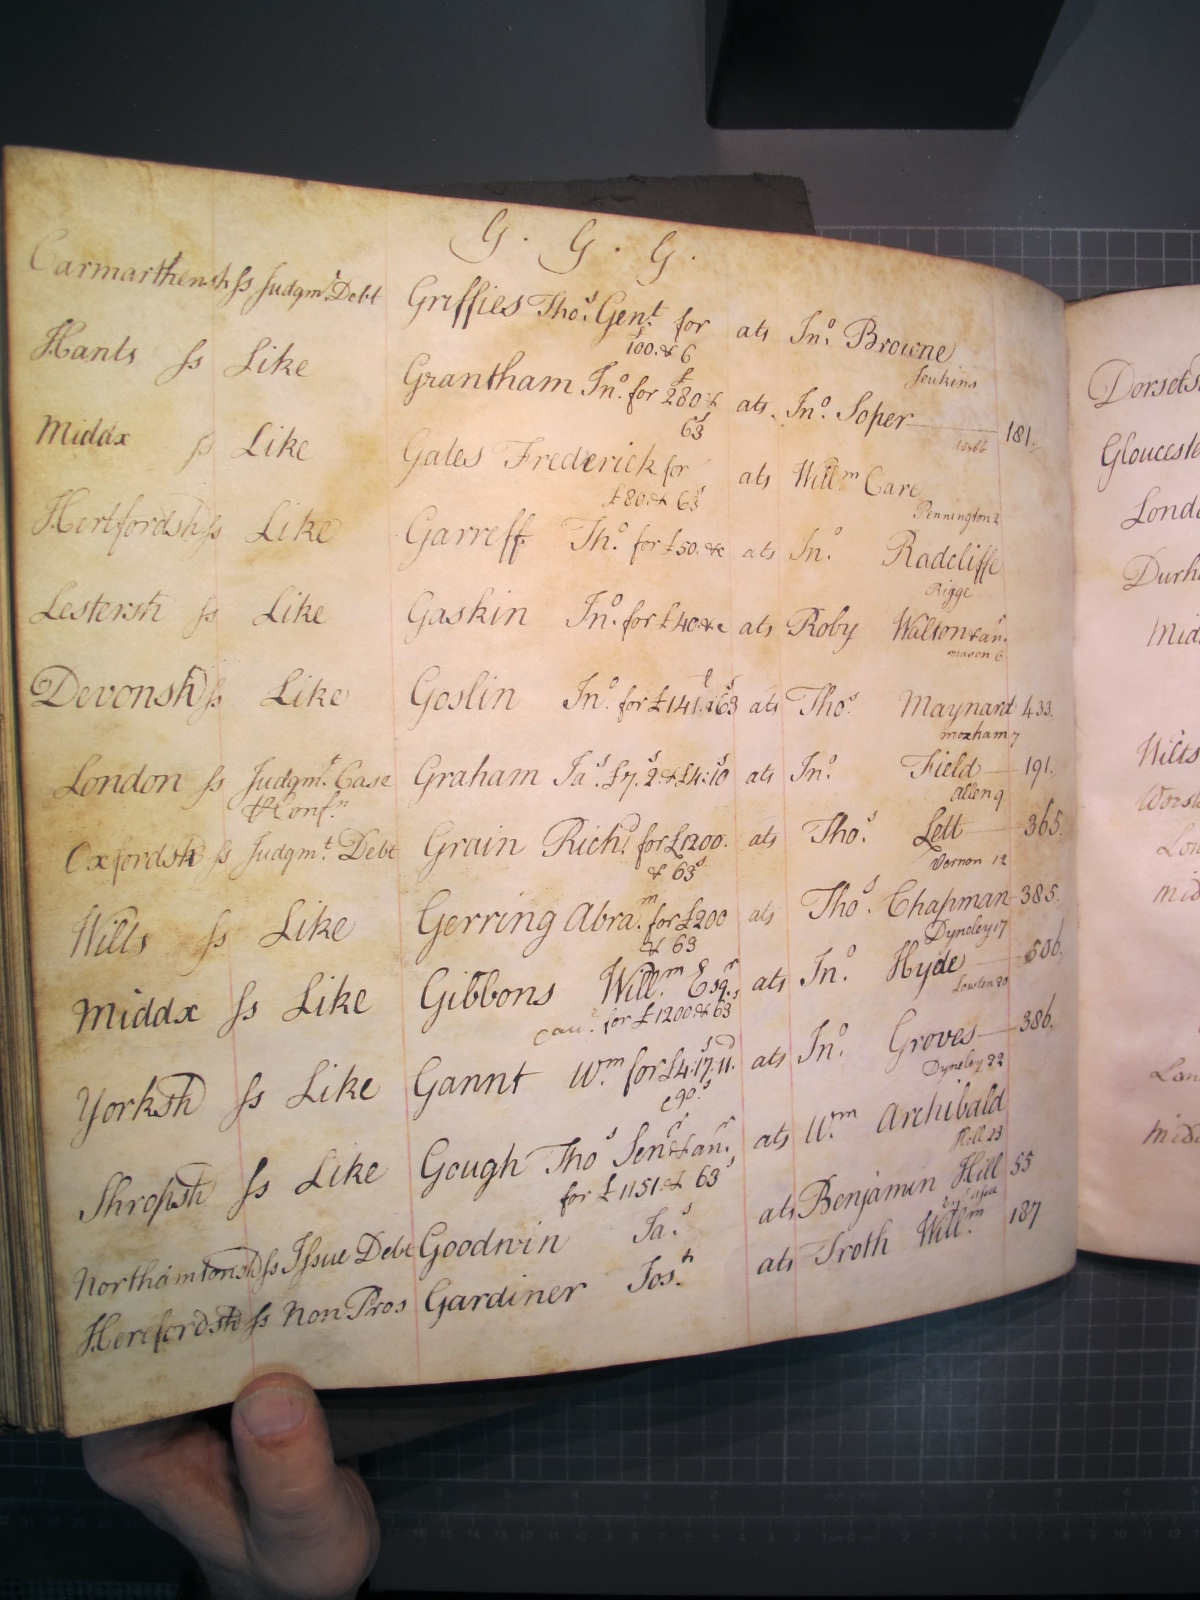 G. G. G.
Carmarthensh ss Judgmt. Debt Griffies Thos. Gent. for ats Jno. Browne
£100. & 6 Jenkins
Hants ss Like Grantham Jno. for £280 & ats. Jno. Soper 181.
63s
Middx ss Like Gates Frederick for ats Willm. Care
£80. & 63s Pennington 2
Hertfordsh ss Like Garreff Tho. for £50. &c ats Jno. Radcliffe
Rigge
Lestersh ss Like Gaskin Jno. for £40 &c ats Roby Walton & an.
mason 6
Devonsh ss Like Goslin Jno. for £141. & 63s ats Thos. Maynard 433.
moxham 7
London ss Judgmt. Case Graham Jas. £7. 2s. & £4:10s ats Jno. Field 191.
& Confn. Allen 9
Oxfordsh ss Judgmt. Debt Grain Richd. for £1200. ats Thos. Lett 365.
& 63s Vernon 12
Wilts ss Like Gerring Abram. for £200 ats Thos. Chapman 385.
& 63 Dyneley 17
Middx ss Like Gibbons Willm. Esqr. ats Jno. Hyde 506.
for £1200 & 63s Lowten 20
Yorksh ss Like Gannt Wm. for £4.17s.11d. ats Jno. Groves 386.
&90s Dyneley 22
Shropsh ss Like Gough Thos Senr. & anr. ats Wm. Archibald
for £1151. & 63s 23
Northamtonsh ss Issue Debt Goodwin Jas. ats Benjamin Hill 55
Herefordsh ss Non Pros Gardiner Josh. ats Troth Willm. 187
Dorsets
Glouceste
Londo
Durh
Mid
Wilts
Worst
Lon
mid
Lon
midd